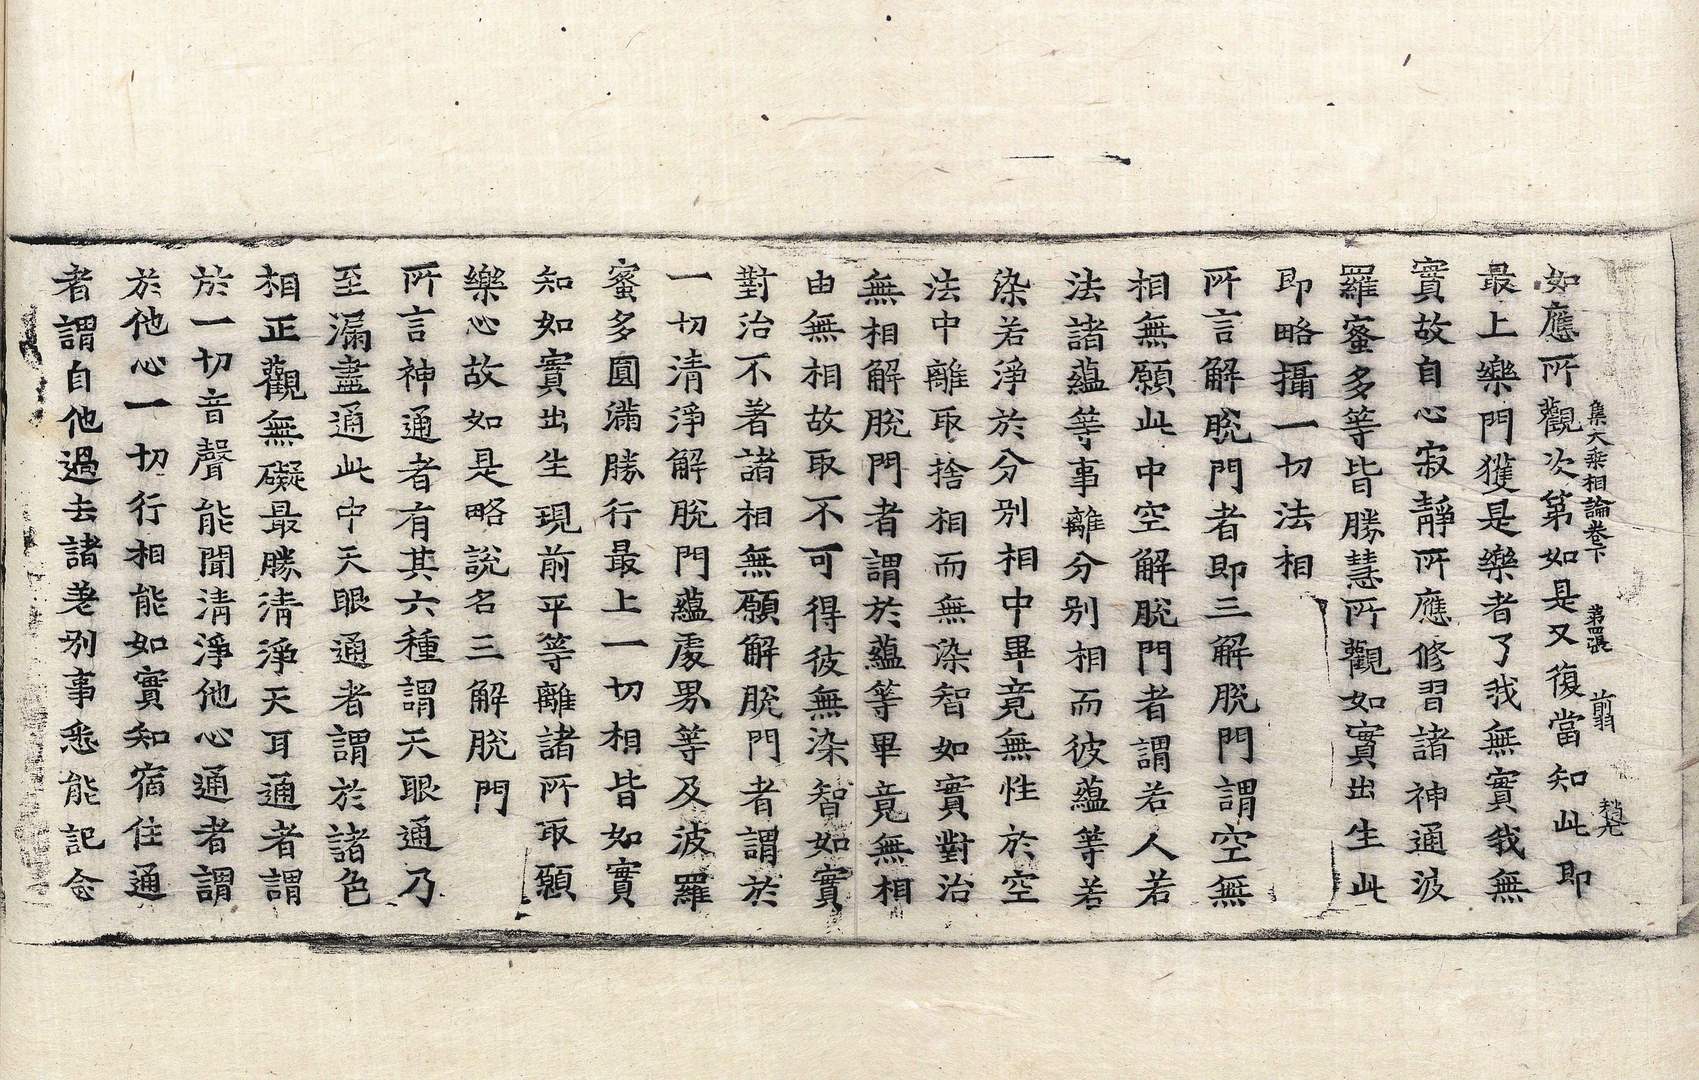 集大乘相論卷下 第四張 前羽 趙允
如應所觀次第如是又復當知此即
最上樂門獲是樂者了我無實我無
實故自心寂靜所應修習諸神通波
羅蜜多等皆勝慧所觀如實出生此
即略攝一切法相
所言解脫門者即三解脫門謂空無
相無願此中空解脫門者謂若人若
法諸蘊等事離分別相而彼蘊等若
染若淨於分別相中畢竟無性於空
法中離取捨相而無染智如實對治
無相解脫門者謂於蘊等畢竟無相
由無相故取不可得彼無染智如實
對治不著諸相無願解脫門者謂於
一切清淨解脫門蘊處界等及波羅
蜜多圓滿勝行最上一切相皆如實
知如實出生現前平等離諸所取願
樂心故如是略說名三解脫門
所言神通者有其六種謂天眼通乃
至漏盡通此中天眼通者謂於諸色
相正觀無礙最勝清淨天耳通者謂
於一切音聲能聞清淨他心通者謂
於他心一切行相能如實知宿住通
者謂自他過去諸差別事悉能記念